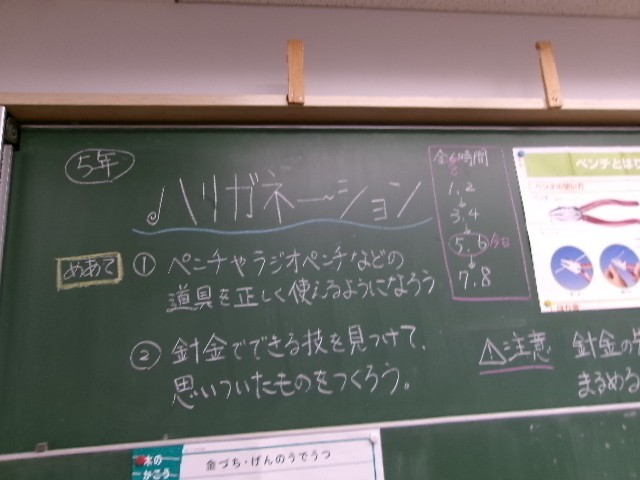 5年
ハリガネーション
めあて
① ペンチやラジオペンチなどの
道具を正しく使えるようになろう
② 針金でできる技を見つけて、
思いついたものをつくろう。
時間
1,2
3,4
5,6 今日
7,8
ペンチとはり
⚠注意 針金の
まるめる
木の
かこう
金づち・げんのうでうつ